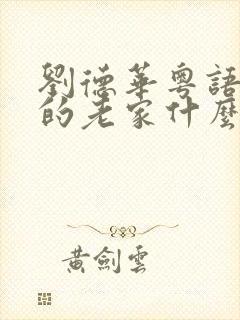 劉德華粵語
的老家什麼
黃劍雲